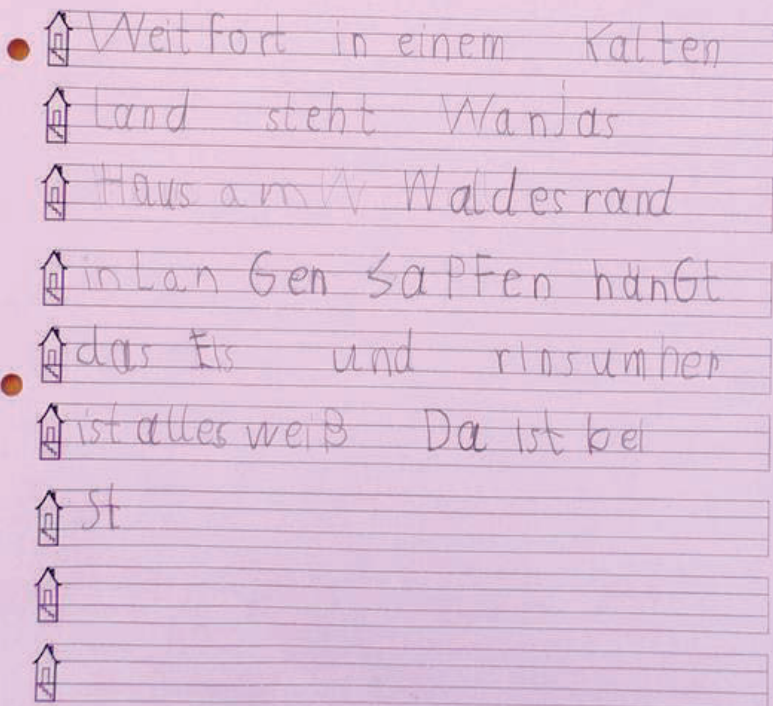 Weit fort in einem Kalten
Land steht Wanjas
Haus am W Waldesrand
in Lan Gen SaPFen hänGt
das Eis und rinsumher
ist alles weiß Da ist bei
St